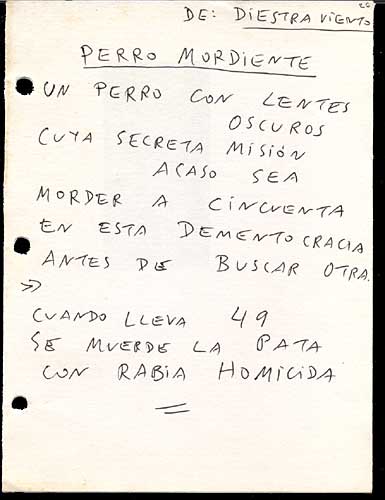 26
DE: DIESTRA VIENTO
PERRO MORDIENTE
UN PERRO CON LENTES
OSCUROS
CUYA SECRETA MISIÓN
ACASO SEA
MORDER A CINCUENTA
EN ESTA DEMENTOCRACIA
ANTES DE BUSCAR OTRA.
»
CUANDO LLEVA 49
SE MUERDE LA PATA
CON RABIA HOMICIDA